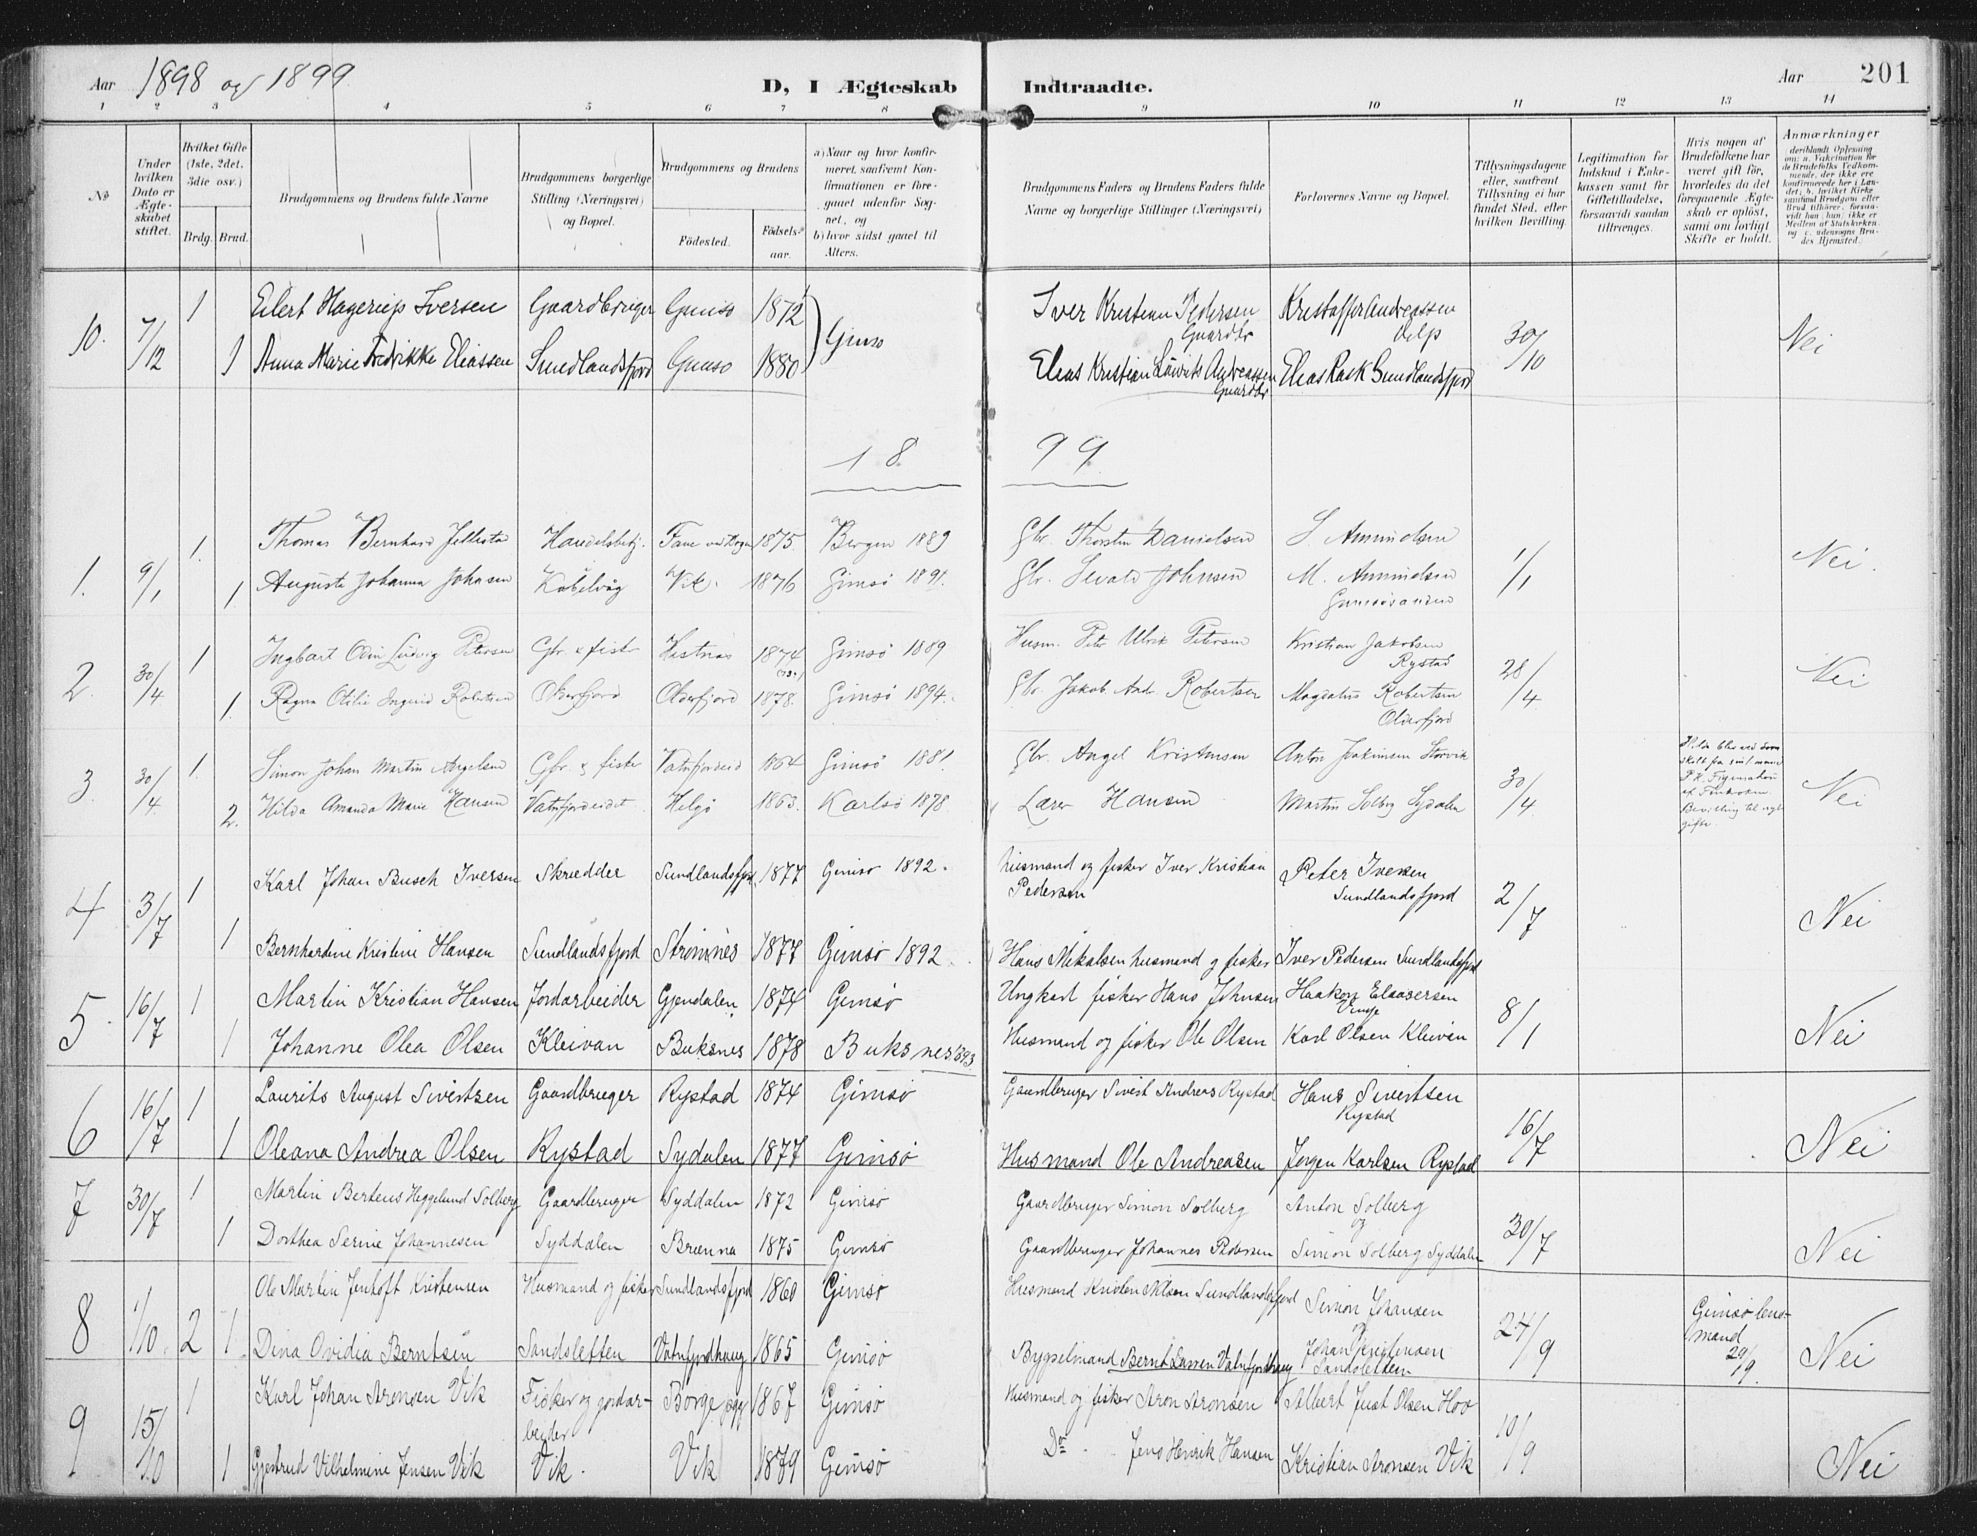 Aar 1898 og 1899 D, I Ægteskab Indtraadte. Aar 201
1 2 3 4 5 6 7 8 9 10 11 12 13 14
No
Under hvilken Dato er Ægteskabet stiftet.
Hvilket Gifte (1ste, 2det, 3die osv.)
Brdg. Brud.
Brudgommens og Brudens fulde Navne
Brudgommens borgerlige Stilling (Næringsvei) og Bopæl.
Brudgommens og Brudens
Fødested. Fødselsaar.
a) Naar og hvor konfirmeret, saafremt Konfirmationen er foregaaet udenfor Sognet, og
b) hvor sidst gaaet til Alters.
Brudgommens Faders og Brudens Faders fulde Navne og borgerlige Stillinger (Næringsvei)
Forlovernes Navne og Bopæl.
Tillysningsdagene eller, saafremt Tillysning ei har fundet Sted, efter hvilken Bevilling.
Legitimation for Indskud i Enkekassen samt for Giftetilladelse, forsaavidt saadan tiltrænges.
Hvis nogen af Brudefolkene har været gift før, hvorledes da det foregaaende Ægteskab er opløst, samt om lovligt Skifte er holdt.
Anmærkninger
10. 7/12 1 Eilert Hagerup Iversen Gaardbruger Gimsø 1872 Gimsø Iver Kristian Pedersen Gaardbr Kristoffer Andreassen Delp 30/10 Nei
1 Anna Marie Fredrikke Eliassen Sundlandsfjord Gimsø 1880 Elias Kristian Laurits Andreassen Gaardbr Elias Rask Sundlandsfjord
18 99
1. 9/1 1. Thomas Bernhard Jellestad Handelsbetj. Fane ved Bergen 1875. Bergen 1889 Gbr. Thorsten Danielsen S. Amundsen 1/1 Nei.
1 Augusta Johanna Johnsen Kabelvåg Vik. 1876 Gimsø 1891. Gbr. Sivald Johnsen M. Amundsen Gimsøsanden
2. 30/4 1 Ingbart Odin Ludvig Petersen Gbr. & fisker Hestnæs 1874 Gimsø 1889 Husm. Peter Ulrik Petersen Kristian Jakobsen Rystad 28/4 Nei
1. Ragna Otilie Ingrid Robertsen Olderfjord Olderfjord 1878. Gimsø 1894. Gbr. Jakob And. Robertsen Magdalus Robertsen Olderfjord
3. 30/4 1. Simon Johan Martin Angelsen Gbr. & fisker Vatnfjordeid 1864 Gimsø 1881. Gbr. Angel Kristensen Anton Joakimsen Storvik 30/4 Nei
2. Hilda Amanda Marie Hansen Vatnfjordeidet. Helgø 1863. Karlsø 1878. Lærer Hansen Martin Solberg Sydalen
4 3/7 1 Karl Johan Busch Iversen Skrædder Sundlandsfjord. 1877 Gimsø 1892. husmand og fisker Iver Kristian Pedersen Peter Iversen Sundlandsfjord 2/7 Nei
1 Bernhardine Kristine Hansen Sundlandsfjord Strømnes 1877 Gimsø 1892. Hans Mikalsen husmand og fisker Iver Pedersen Sundlandsfjord
5. 16/7 1 Martin Kristian Hansen Jordarbeider Gjendalen 1874 Gimsø Ungkarl fisker Hans Johnsen Haakon Elasersen Vinje 8/1 Nei
1 Johanne Olea Olsen Kleivan Buksnes 1878 Buksnes 1893 Husmand og fisker Ole Olsen Karl Olsen Kleivan
6 16/7 1 Laurits August Sivertsen Gaardbruger Rystad 1874 Gimsø Gaardbruger Sivert Andreas Rystad Hans Sivertsen Rystad 16/7 Nei
1 Oleana Andrea Olsen Rystad Sydalen 1877 Gimsø Husmand Ole Andreasen Jørgen Karlsen Rystad
7 30/7 1 Martin Berteus Heggelund Solberg Gaardbruger Syddalen 1872 Gimsø Gaardbruger Simon Solberg Anton Solberg og 30/7 Nei
1 Dorthea Serine Johannesen Syddalen Brenna 1875 Gimsø Gaardbruger Johannes Pedersen Simon Solberg Syddalen
8 1/10. 2 1. Ole Martin Jentoft Kristensen Husmand og fisker Sundlandsfjord 1860 Gimsø Husmand Kristen Nilsen Sundlandsfjord Simon Johansen og 24/9 Gimsø lensmand 29/9. Nei
Dina Ovidia Berntsen Sandsletten Vatnfjordhaug 1865 Gimsø Bygselmand Bernt Larsen Vatnfjordhaug Johan Kristensen Sandsletten
9 15/10 1 Karl Johan Aronsen Vik Fisker og jordarbeider Borge 1867 Gimsø Husmand og fisker Aron Aronsen Albert Just Olsen Hov 10/9 Nei
1 Gjertrud Vilhelmine Jensen Vik Vik. Vik 1879 Gimsø Do Jens Henrik Hansen Kristian Aronsen Vik